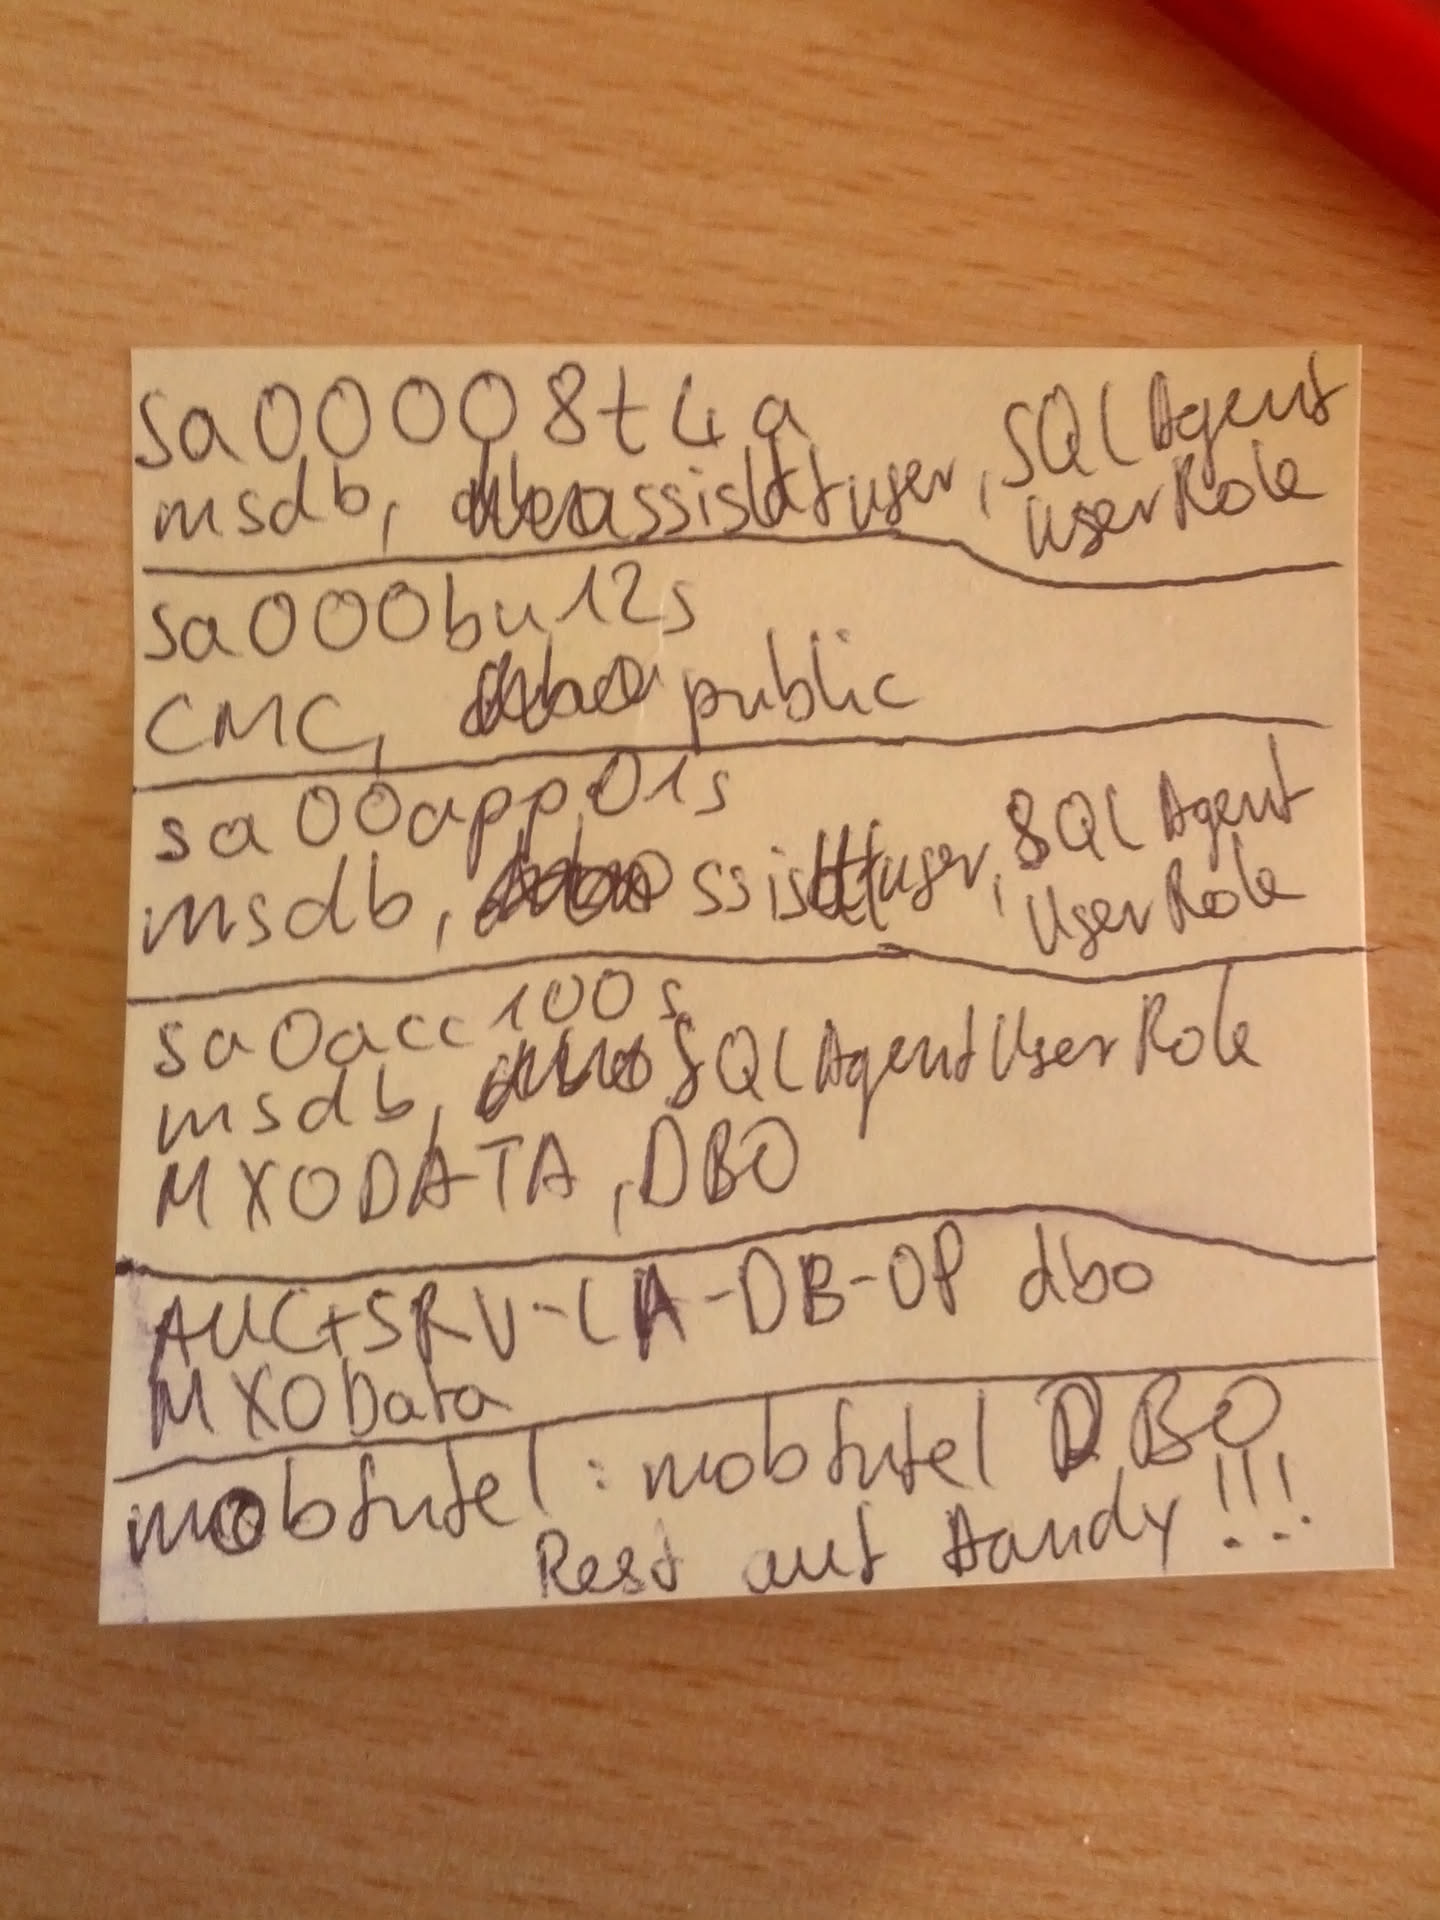 sa00008t4a
msdb, assistuser, SQLAgent
UserRole
sa000bu12s
CMC, public
sa00app01s
msdb, SQLAgent
UserRole
sa0acc100s
msdb, SQLAgentUserRole
MXODATA, DBO
AUC+SRV-LA-DB-OP dbo
MXOData
DBO
Rest auf Handy!!!